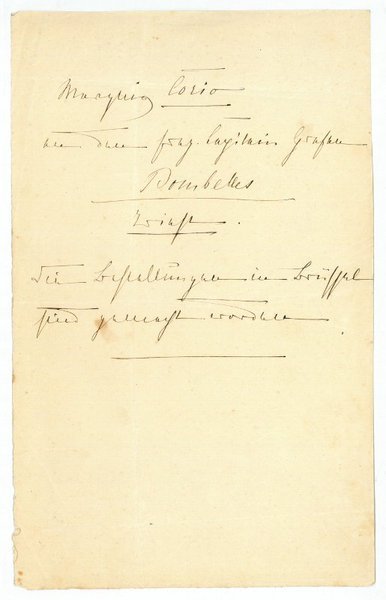 Marquis Corio
an den freg. Capitain Grafen
Bombelles
Triest.
Die Bestellungen in Brüssel
sind gemacht worden